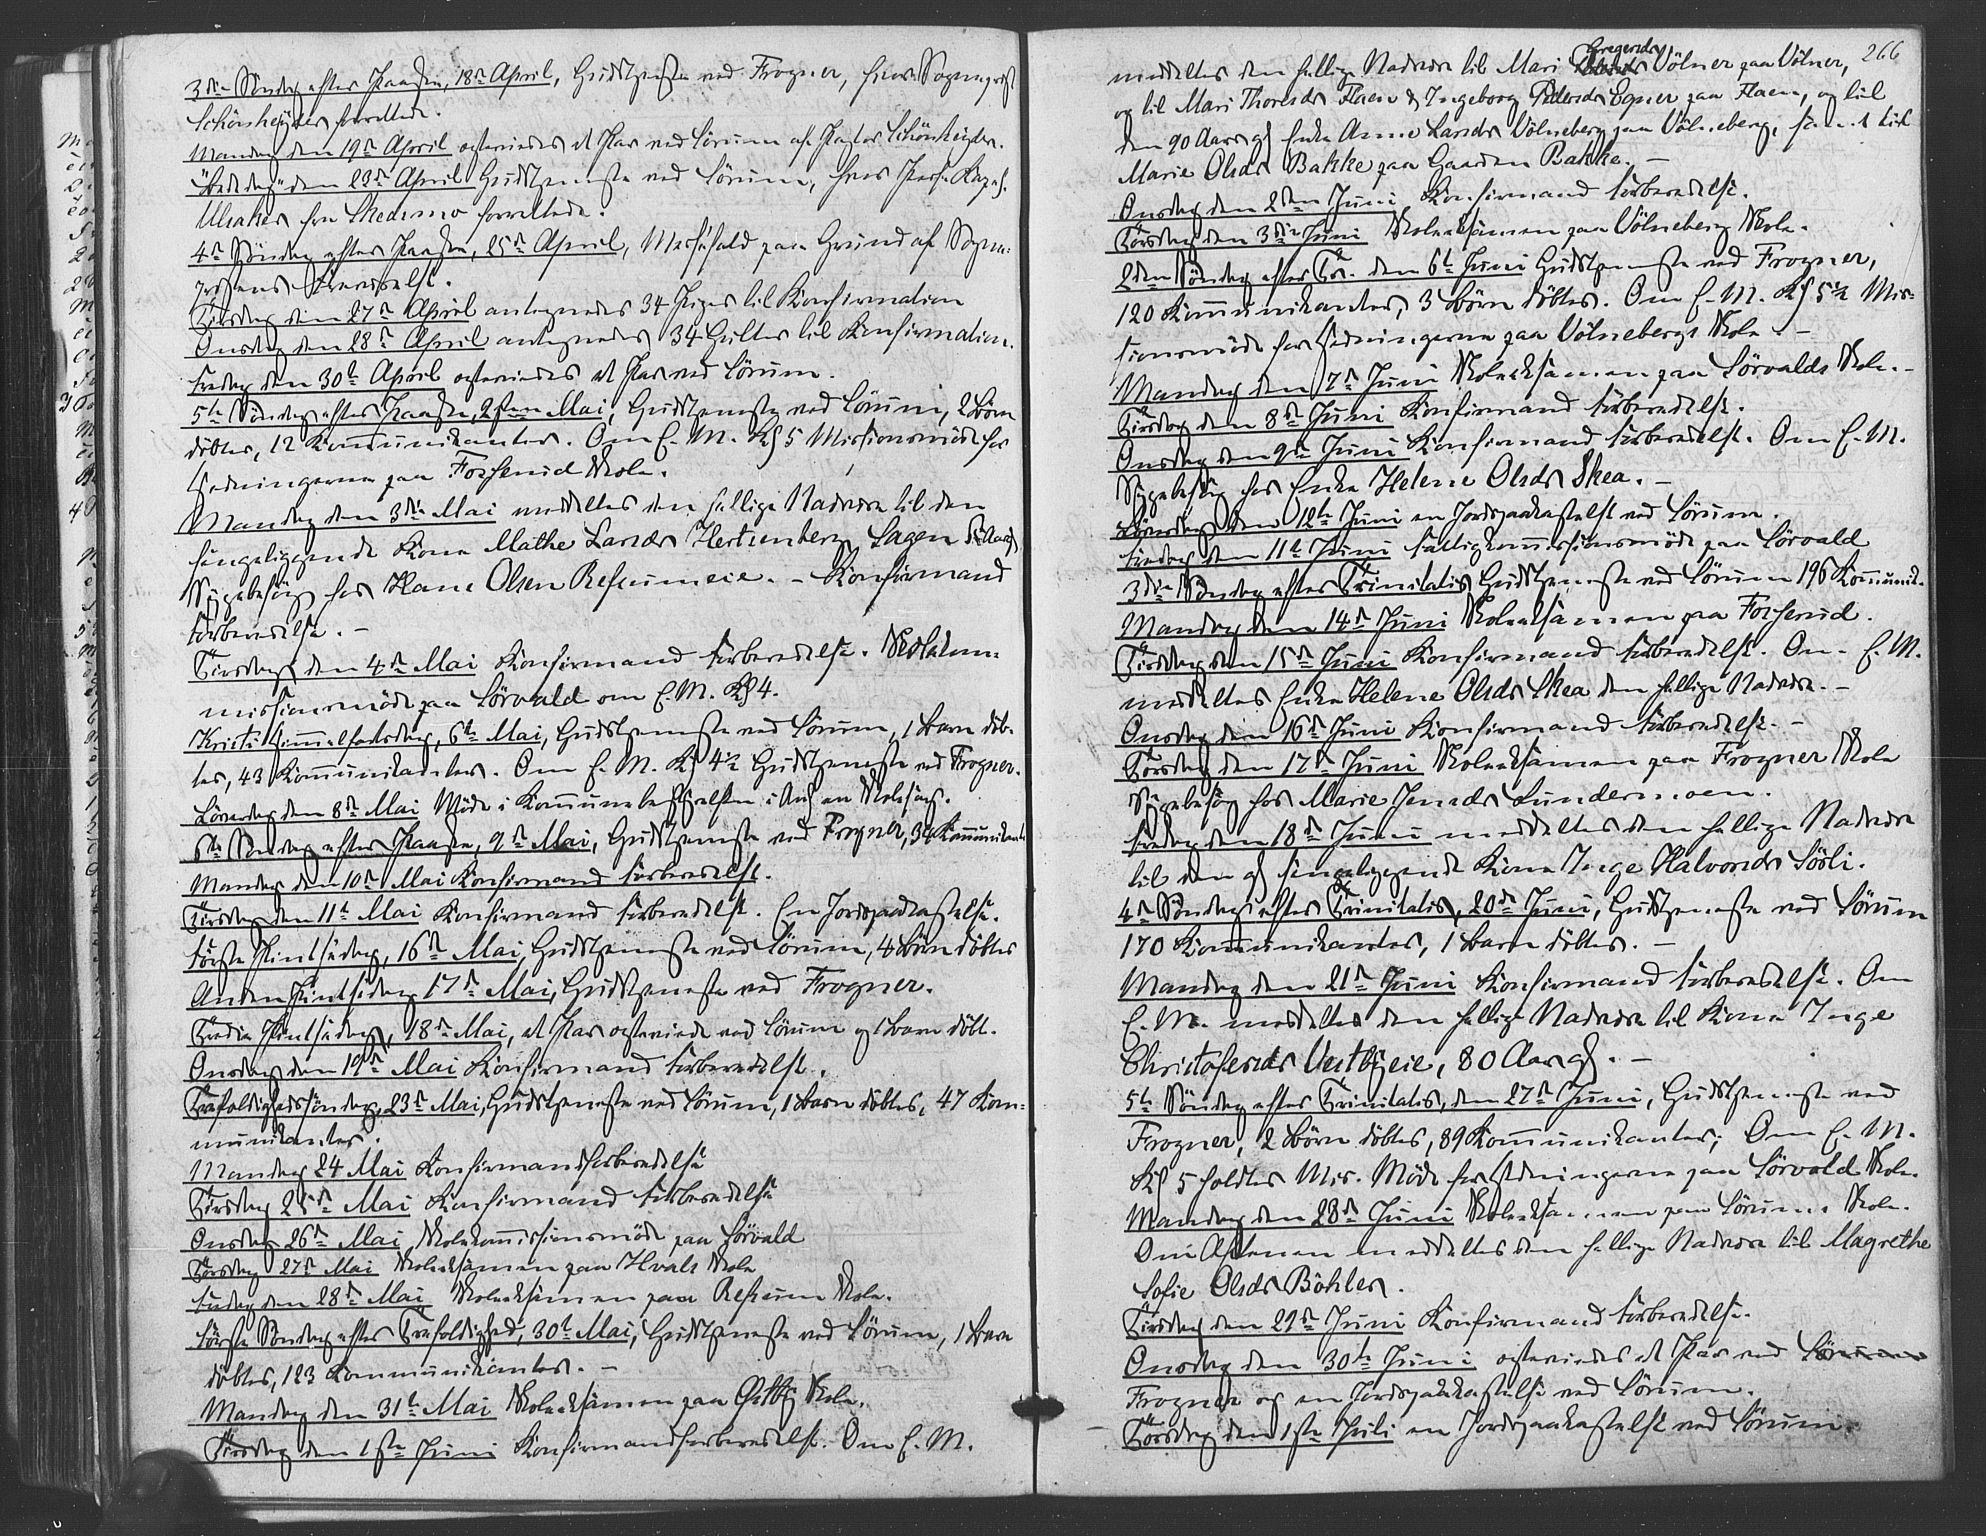 3die Söndag efter Paaske, 18de April, Gudstjeneste ved Frogner, hvor Sognepræst
Schönheyder forrettede.
Mandag den 19de April ægteviedes et Par ved Sörum af Pastor Schönheyder.
"Bededag" den 23de April Gudstjeneste ved Sörum, hvor Pers. Kap.
Ulsaker fra Skedsmo forrettede.
4de Söndag efter Paaske, 25de April, Messefald paa Grund af Sogne-
præstens Fraværelse.
Tirsdag den 27de April antegnedes 34 Piger til Konfirmation
Onsdag den 28de April antegnedes 34 Gutter til Konfirmation.
Fredag den 30te April ægteviedes et Par ved Sörum.
5te Söndag efter Paaske, 2den Mai, Gudstjeneste ved Sörum, 2 Börn
döbtes, 12 Kommunikanter. Om E. M. Kl 5 Missionsmöde for
Hedningerne paa Fosserud Skole.
Mandag den 3die Mai meddeltes den hellige Nadvere til den
sengeliggende Kone Mathe Larsdr
Sygebesög hos Hans Olsen Refsumeie. – Konfirmand
Forberedelse. –
Tirsdag den 4de Mai Konfirmand Forberedelse. Skolekom-
missionsmöde paa Sörvald om E. M. Kl 4.
Kristi Himmelfartsdag, 6te Mai, Gudstjeneste ved Sörum, 1 Barn döb-
tes, 43 Kommunikanter. Om E. M. Kl 4½ Gudstjeneste ved Frogner.
Löverdag den 8de Mai Möde i Kommunebestyrelsen i Anl. en Skolesag.
6te Söndag efter Paaske, 9de Mai, Gudstjeneste ved Frogner, 34 Kommunikanter
Mandag den 10de Mai Konfirmand Forberedelse.
Tirsdag den 11te Mai Konfirmand Forberedelse. En Jordpaakastelse.
Förste Pintsedag, 16de Mai, Gudstjeneste ved Sörum, 4 Börn döbtes
Anden Pintsedag 17de Mai, Gudstjeneste ved Frogner.
Tredie Pintsedag, 18de Mai, et Par ægteviede ved Sörum og 1 Barn döbt.
Onsdag den 19de Mai Konfirmand Forberedelse.
Trefoldighedssöndag, 23de Mai, Gudstjeneste ved Sörum, 1 Barn döbtes, 47 Kom-
munikanter.
Mandag 24 Mai Konfirmandforberedelse
Tirsdag 25de Mai Konfirmand Forberedelse
Onsdag 26de Mai Skolekommissionsmöde paa Sörvald
Torsdag 27de Mai Skoleeksamen paa Hvals Skole
Fredag den 28de Mai Skoleeksamen paa Refsum Skole.
Förste Söndag efter Trefoldighed, 30te Mai, Gudstjeneste ved Sörum, 1 Barn
döbtes, 123 Kommunikanter. –
Mandag den 31te Mai Skoleeksamen paa Østby Skole.
Tirsdag den 1ste Juni Konfirmandforberedelse. Om E. M.
266
Gregersdr
meddeltes den hellige Nadvere til Mari Völner paa Völner,
og til Mari Thoresdr Flaen & Ingeborg Pedersdr Egner paa Flaen, og til
den 90 Aars gl Enke Anne Larsdr Völneberg paa Völneberg, samt til
Marie Olsdr Bakke paa Gaarden Bakke. –
Onsdag den 2den Juni Konfirmand Forberedelse.
Torsdag den 3die Juni Skoleeksamen paa Völneberg Skole.
2den Söndag efter Tr. den 6te Juni Gudstjeneste ved Frogner,
120 Kommunikanter, 3 Börn döbtes. Om E. M. Kl 5½ Mis-
sionsmöde for Hedningerne paa Völnebergs Skole –
Mandag den 7de Juni Skoleeksamen paa Sörvalds Skole. –
Tirsdag den 8de Juni Konfirmand Forberedelse.
Onsdag den 9de Juni Konfirmand Forberedelse. Om E. M.
Sygebesög hos Enke Helene Olsdr Skea. –
Löverdag den 12te Juni en Jordpaakastelse ved Sörum.
Fredag den 11te Juni Fattigkommissionsmöde paa Sörvald
3die Söndag efter Trinitatis Gudstjeneste ved Sörum 196 Kommunik.
Mandag den 14de Juni Skoleeksamen paa Fosserud.
Tirsdag den 15de Juni Konfirmand Forberedelse. Om E. M.
meddeltes Enke Helene Olsdr Skea den hellige Nadvere. –
Onsdag den 16de Juni Konfirmand Forberedelse. –
Torsdag den 17de Juni Skoleeksamen paa Frogner Skole
Sygebesög hos Marie Jensdr Lundermoen.
Fredag den 18de Juni meddeltes den hellige Nadvere
til den gl sengeliggende Kone Inge Halvorsdr Sörli.
4de Söndag efter Trinitatis, 20de Juni, Gudstjeneste ved Sörum
170 Kommunikanter, 1 Barn döbtes. –
Mandag den 21de Juni Konfirmand Forberedelse. Om
E. M. meddeltes den hellige Nadvere til Kone Inge
Christofersdr Vestbyeie, 80 Aar gl. –
5te Söndag efter Trinitatis, den 27de Juni, Gudstjeneste ved
Frogner, 2 Börn döbtes, 89 Kommunikanter; Om E. M.
Kl 5 holdtes Mis. Möde for Hedningerne paa Sörvald Skole.
Mandag den 28de Juni Skoleeksamen paa Sörum Skole.
Om Aftenen meddeltes den hellige Nadvere til Magrethe
Sofie Olsdr Böhler.
Tirsdag den 29de Juni Konfirmand Forberedelse.
Onsdag den 30te Juni ægteviedes et Par ved Sörum
Frogner og en Jordpaakastelse ved Sörum.
Torsdag den 1ste Juli en Jordpaakastelse ved Sörum.